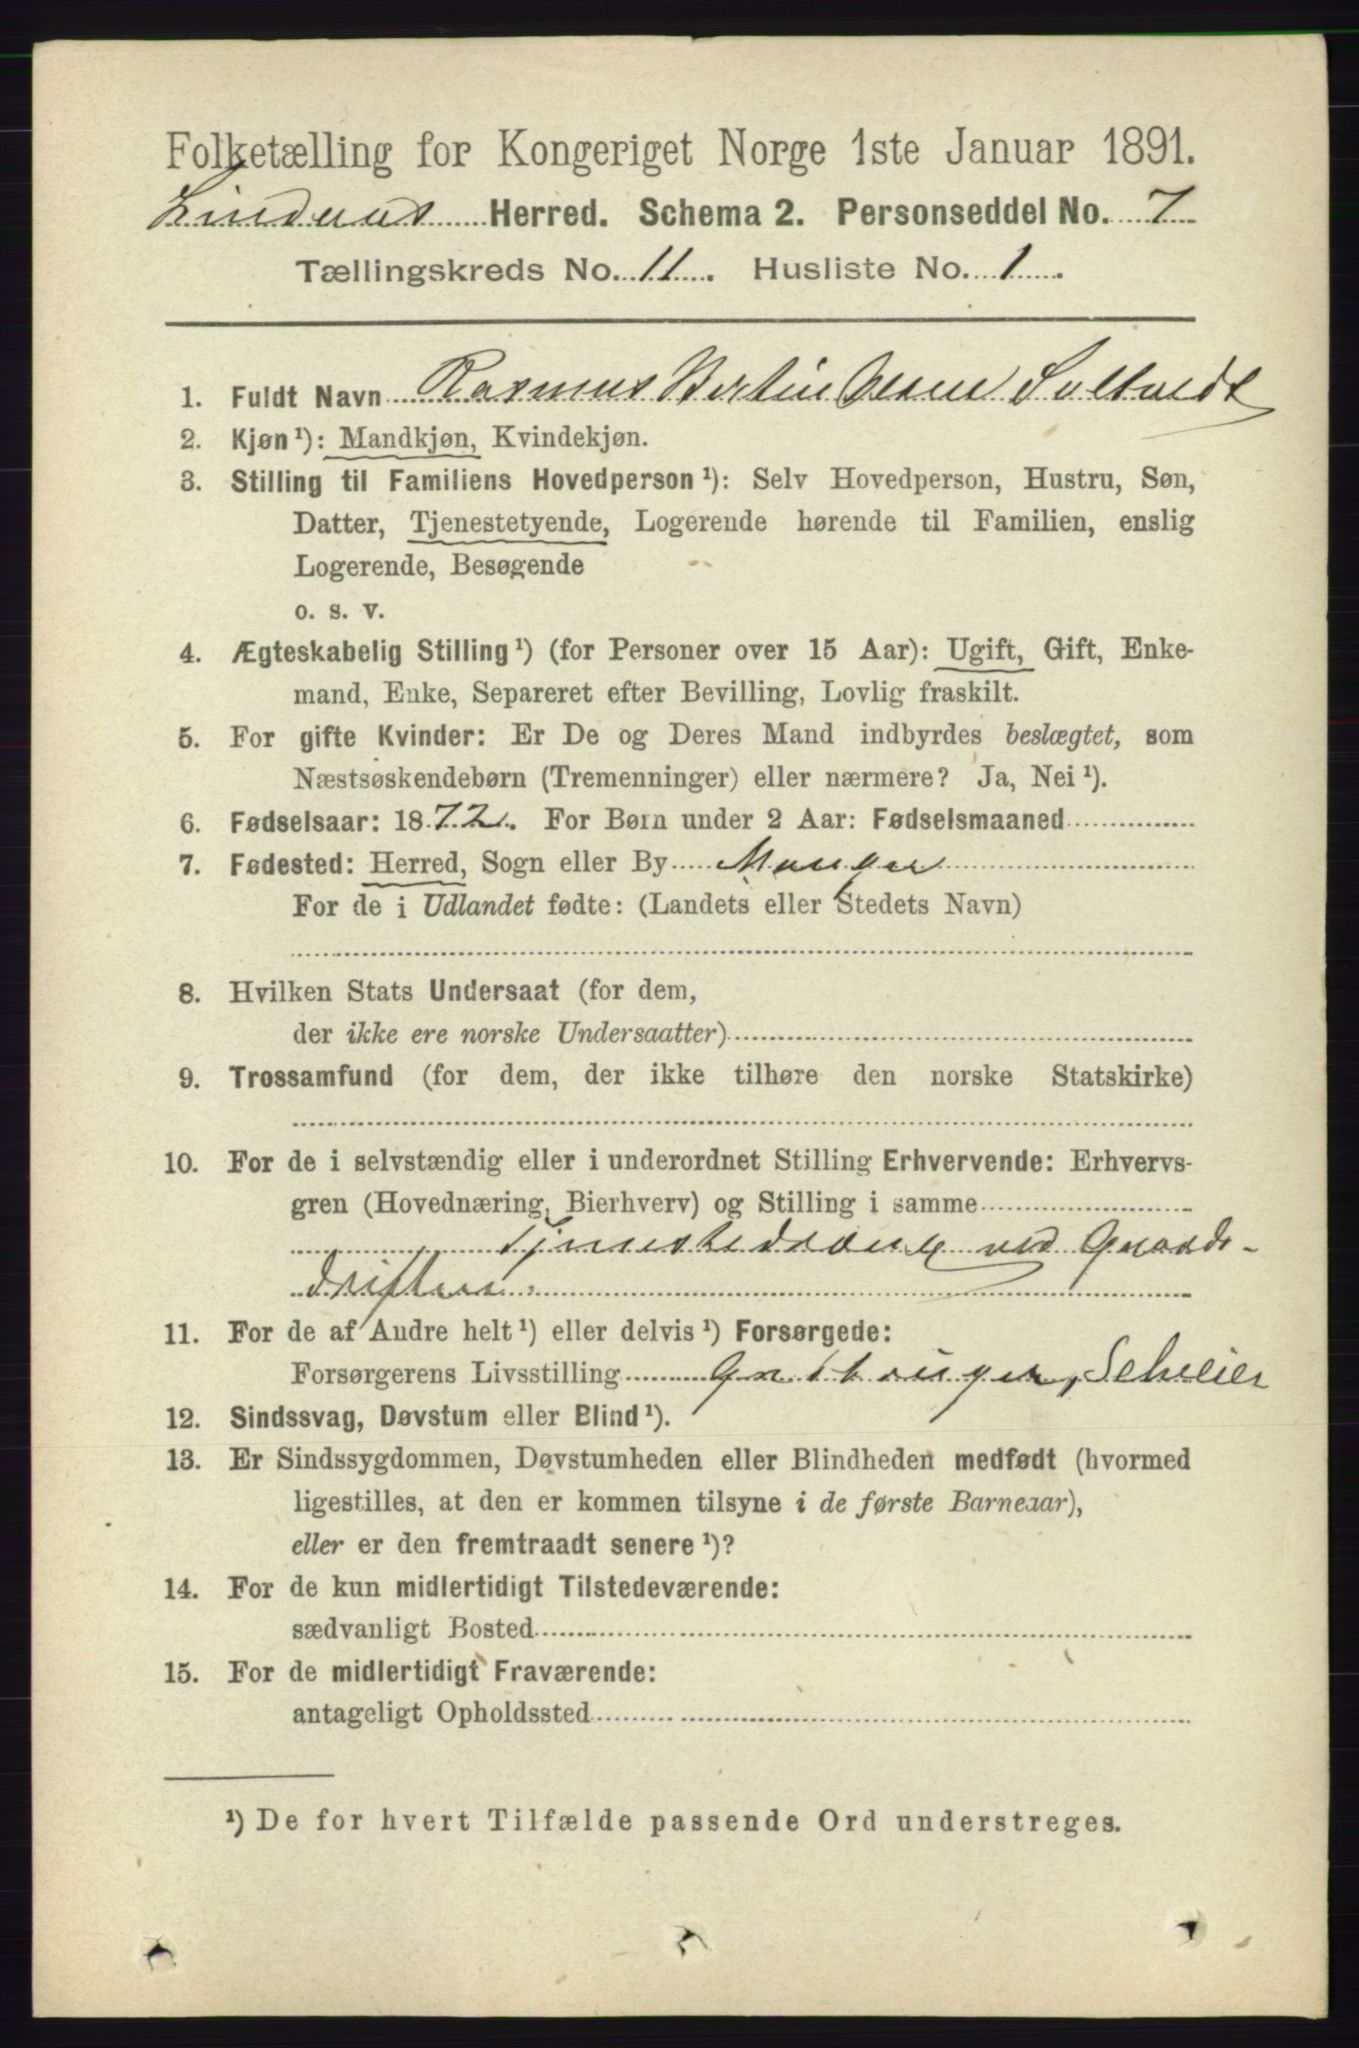 Folketælling for Kongeriget Norge 1ste Januar 1891.
Lindaas Herred. Schema 2. Personseddel No. 7
Tællingskreds No. 11. Husliste No. 1.
1. Fuldt Navn Rasmus Bertin Olsen Soltvedt
2. Kjøn ¹): Mandkjøn, Kvindekjøn.
3. Stilling til Familiens Hovedperson ¹): Selv Hovedperson, Hustru, Søn,
Datter, Tjenestetyende, Logerende hørende til Familien, enslig
Logerende, Besøgende
o. s. v.
4. Ægteskabelig Stilling ¹) (for Personer over 15 Aar): Ugift, Gift, Enke-
mand, Enke, Separeret efter Bevilling, Lovlig fraskilt.
5. For gifte Kvinder: Er De og Deres Mand indbyrdes beslægtet, som
Næstsøskendebørn (Tremenninger) eller nærmere? Ja, Nei ¹).
6. Fødselsaar: 1872. For Børn under 2 Aar: Fødselsmaaned
7. Fødested: Herred, Sogn eller By Manger
For de i Udlandet fødte: (Landets eller Stedets Navn)
8. Hvilken Stats Undersaat (for dem,
der ikke ere norske Undersaatter)
9. Trossamfund (for dem, der ikke tilhøre den norske Statskirke)
10. For de i selvstændig eller i underordnet Stilling Erhvervende: Erhvervs-
gren (Hovednæring, Bierhverv) og Stilling i samme
Tjenestedreng ved Gaards-
driften.
11. For de af Andre helt ¹) eller delvis ¹) Forsørgede:
Forsørgerens Livsstilling Gaardbruger, Selveier
12. Sindssvag, Døvstum eller Blind ¹).
13. Er Sindssygdommen, Døvstumheden eller Blindheden medfødt (hvormed
ligestilles, at den er kommen tilsyne i de første Barneaar),
eller er den fremtraadt senere ¹)?
14. For de kun midlertidigt Tilstedeværende:
sædvanligt Bosted
15. For de midlertidigt Fraværende:
antageligt Opholdssted
¹) De for hvert Tilfælde passende Ord understreges.